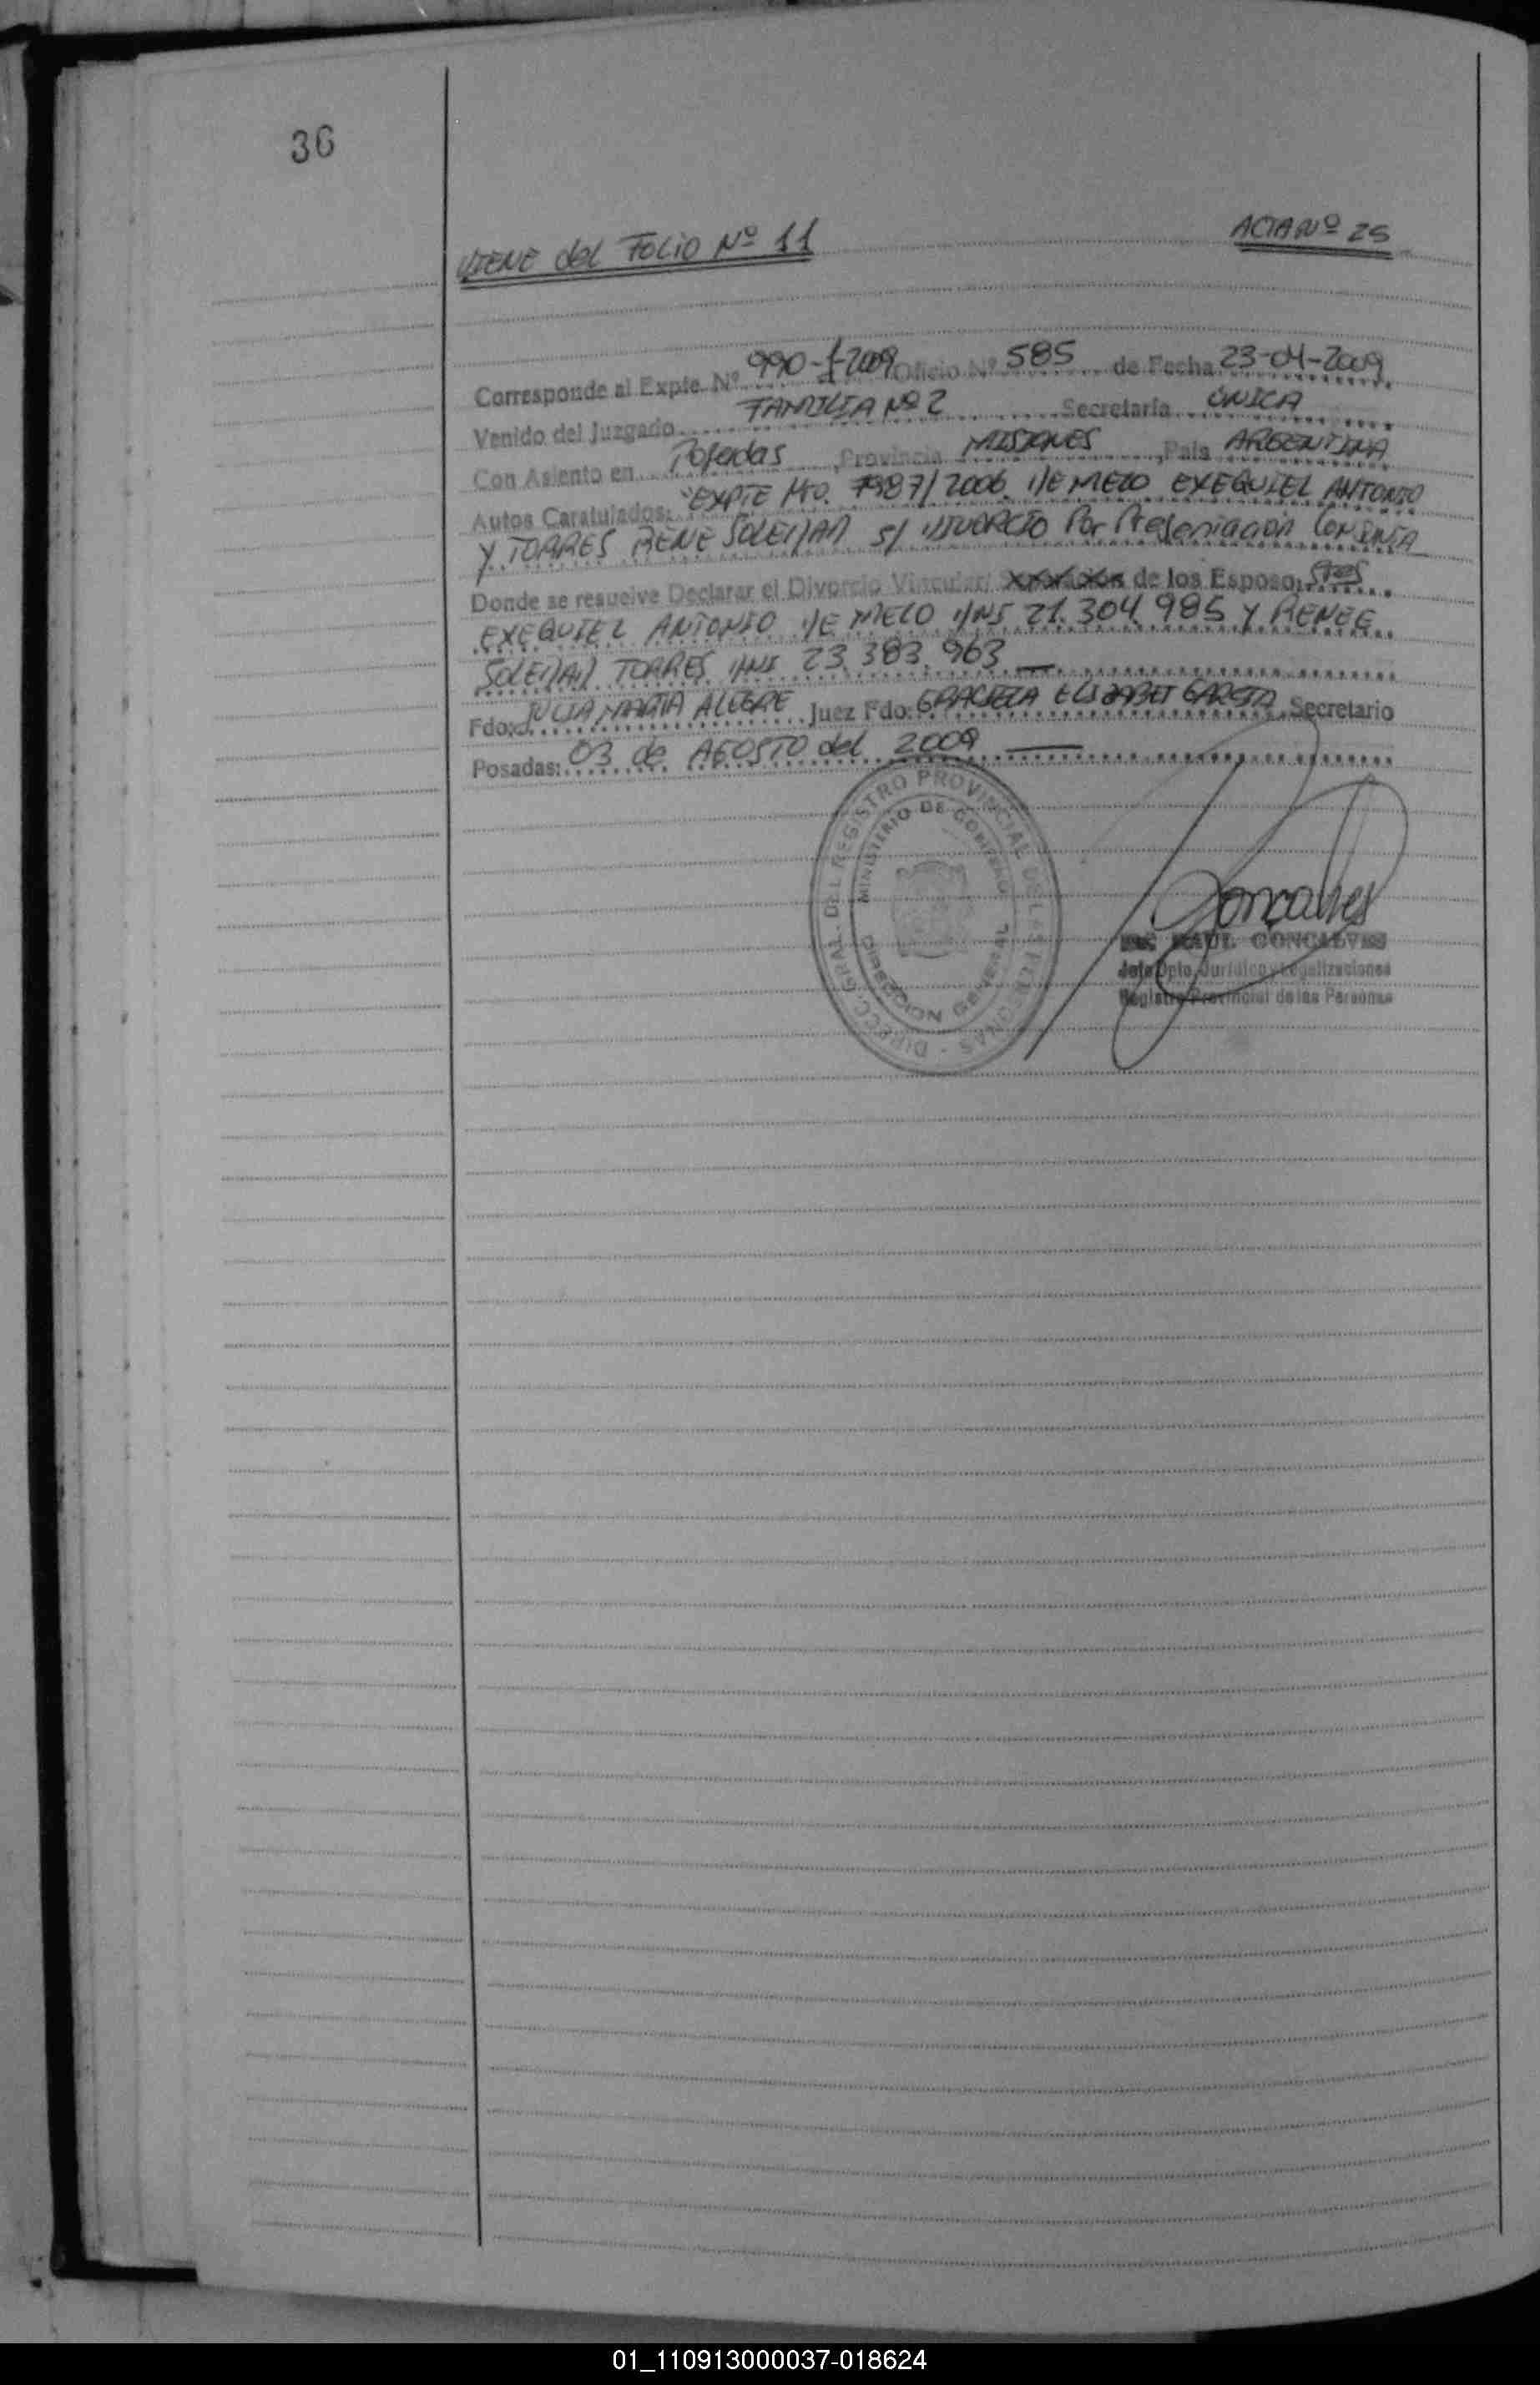 36
VIENE del FOLIO Nº 11
ACTA Nº 25
Corresponde al Expte. Nº 990-J-2009 Oficio Nº 585 de Fecha 23-04-2009
Venido del Juzgado FAMILIA Nº 2 Secretaria UNICA
Con Asiento en Posadas, Provincia MISIONES, Pais ARGENTINA
Autos Caratulados: "EXPTE NRO. 7987/2006 DE MELO EXEQUIEL ANTONIO
Y TORRES RENE SOLEDAD S/ DIVORCIO Por Presentación CONJUNTA
Donde se resuelve Declarar el Divorcio Vincular/ de los Esposo: Sres
EXEQUIEL ANTONIO DE MELO DNI 21.304.985 Y RENEE
SOLEDAD TORRES DNI 23.383.963
Fdo: JULIA MARTA ALEGRE Juez Fdo: GRACIELA ELIZABET GARCIA Secretario
Posadas: 03 de AGOSTO del 2009
DIRECC. GRAL. DEL REGISTRO PROVINCIAL DE LAS PERSONAS -
MINISTERIO DE GOBIERNO
DIRECCION GENERAL
Goncalves
RAUL GONCALVES
Jefe Dpto. Juridico y Legalizaciones
Registro Provincial de las Personas
01_110913000037-018624